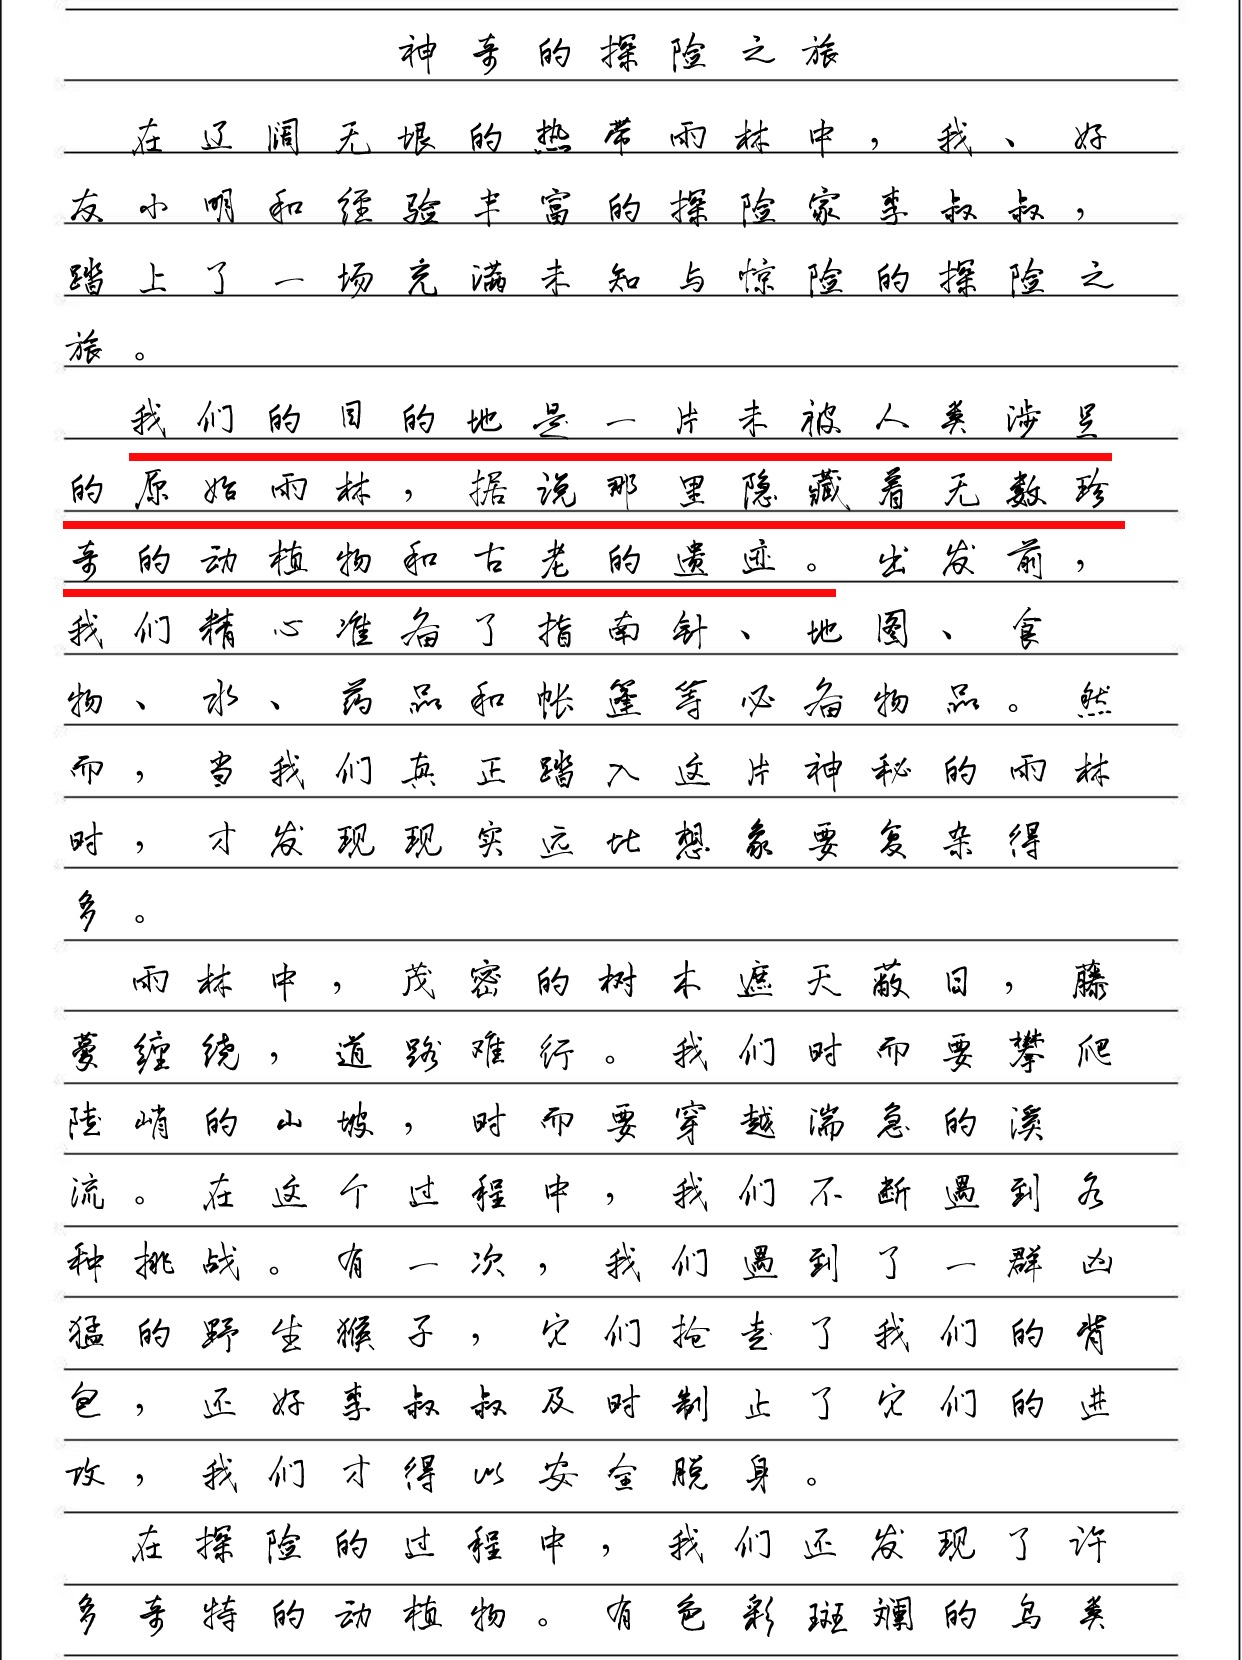 神奇的探险之旅
在辽阔无垠的热带雨林中，我、好
友小明和经验丰富的探险家李叔叔，
踏上了一场充满未知与惊险的探险之
旅。
我们的目的地是一片未被人类涉足
的原始雨林，据说那里隐藏着无数珍
奇的动植物和古老的遗迹。出发前，
我们精心准备了指南针、地图、食
物、水、药品和帐篷等必备物品。然
而，当我们真正踏入这片神秘的雨林
时，才发现现实远比想象要复杂得
多。
雨林中，茂密的树木遮天蔽日，藤
蔓缠绕，道路难行。我们时而要攀爬
陡峭的山坡，时而要穿越湍急的溪
流。在这个过程中，我们不断遇到各
种挑战。有一次，我们遇到了一群凶
猛的野生猴子，它们抢走了我们的背
包，还好李叔叔及时制止了它们的进
攻，我们才得以安全脱身。
在探险的过程中，我们还发现了许
多奇特的动植物。有色彩斑斓的鸟类